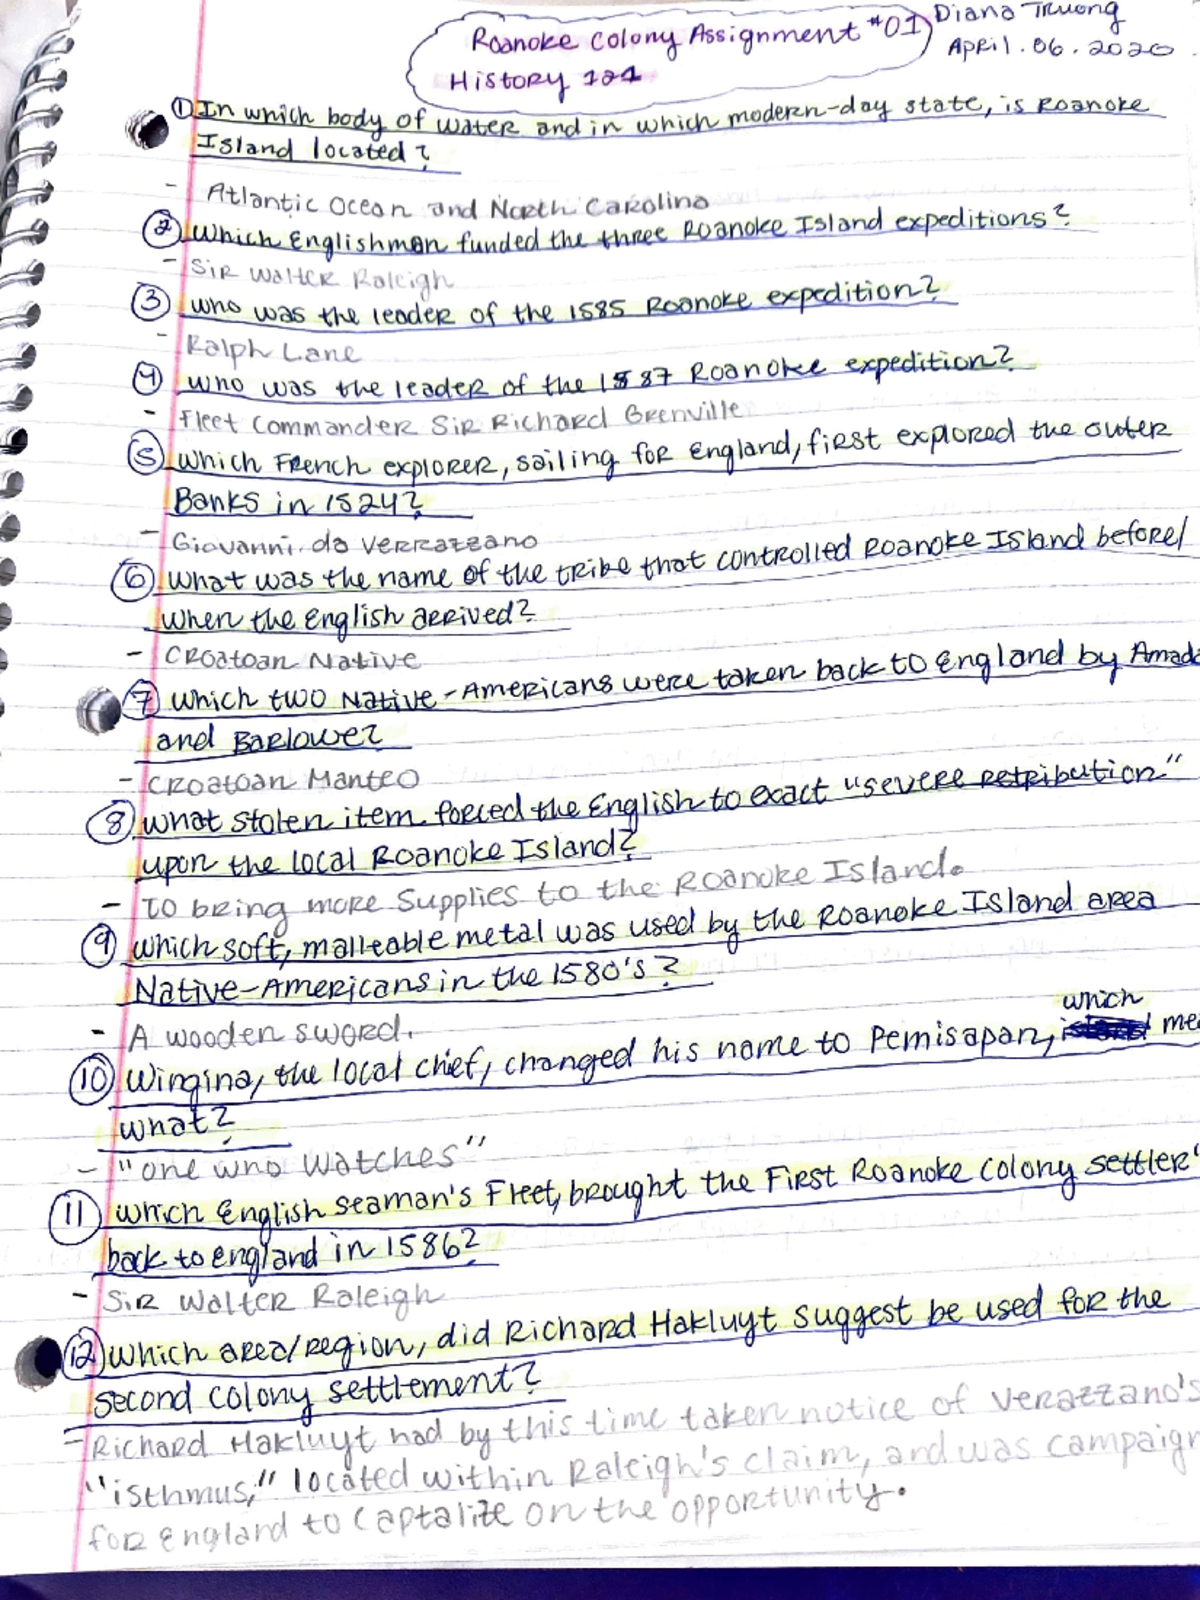 Roanoke Colony Assignment #01
Diana Truong
History 121
April.06.2020
① In which body of water and in which modern-day state, is Roanoke
Island located?
- Atlantic Ocean and North Carolina
② Which Englishman funded the three Roanoke Island expeditions?
- Sir Walter Raleigh
③ Who was the leader of the 1585 Roanoke expedition?
- Ralph Lane
④ Who was the leader of the 1587 Roanoke expedition?
- Fleet Commander Sir Richard Grenville
⑤ Which French explorer, sailing for England, first explored the outer
Banks in 1524?
- Giovanni da Verrazzano
⑥ What was the name of the tribe that controlled Roanoke Island before/
when the English arrived?
- Croatoan Native
⑦ Which two Native-Americans were taken back to England by Amada
and Barlowe?
- Croatoan Manteo
⑧ What stolen item forced the English to exact "severe retribution"
upon the local Roanoke Island?
- To bring more supplies to the Roanoke Island.
⑨ which soft, malleable metal was used by the Roanoke Island area
Native-Americans in the 1580's?
- A wooden sword.
⑩ Wingina, the local chief, changed his name to Pemisapan, which mea
what?
- "one who watches"
⑪ which English seaman's Fleet, brought the First Roanoke colony settler'
back to england in 1586?
- Sir Walter Raleigh
⑫ which area/region, did Richard Hakluyt suggest be used for the
second colony settlement?
- Richard Hakluyt had by this time taken notice of Verazzano's
"isthmus," located within Raleigh's claim, and was campaign
for England to Captalize on the opportunity.